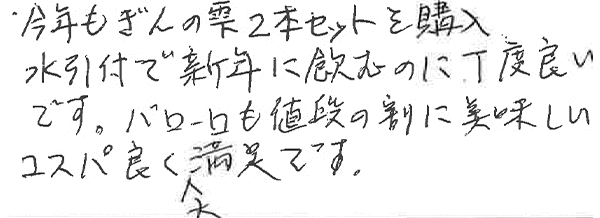 今年もぎんの雫2本セットを購入
水引付で新年に飲むのに丁度良い
です。バローロも値段の割に美味しい
コスパ良く満足です。